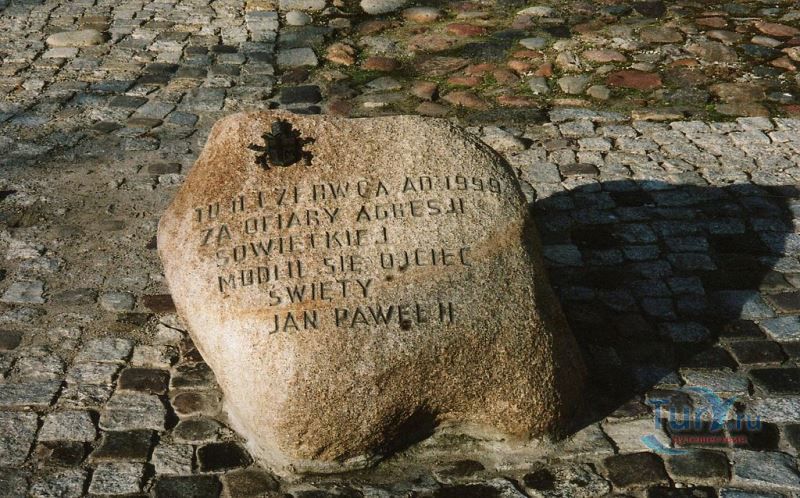 TU 11 CZERWCA AD 1999
ZA OFIARY AGRESJI
SOWIECKIEJ
MODLIŁ SIĘ OJCIEC
ŚWIĘTY
JAN PAWEŁ II
Tury.ru
путешествий